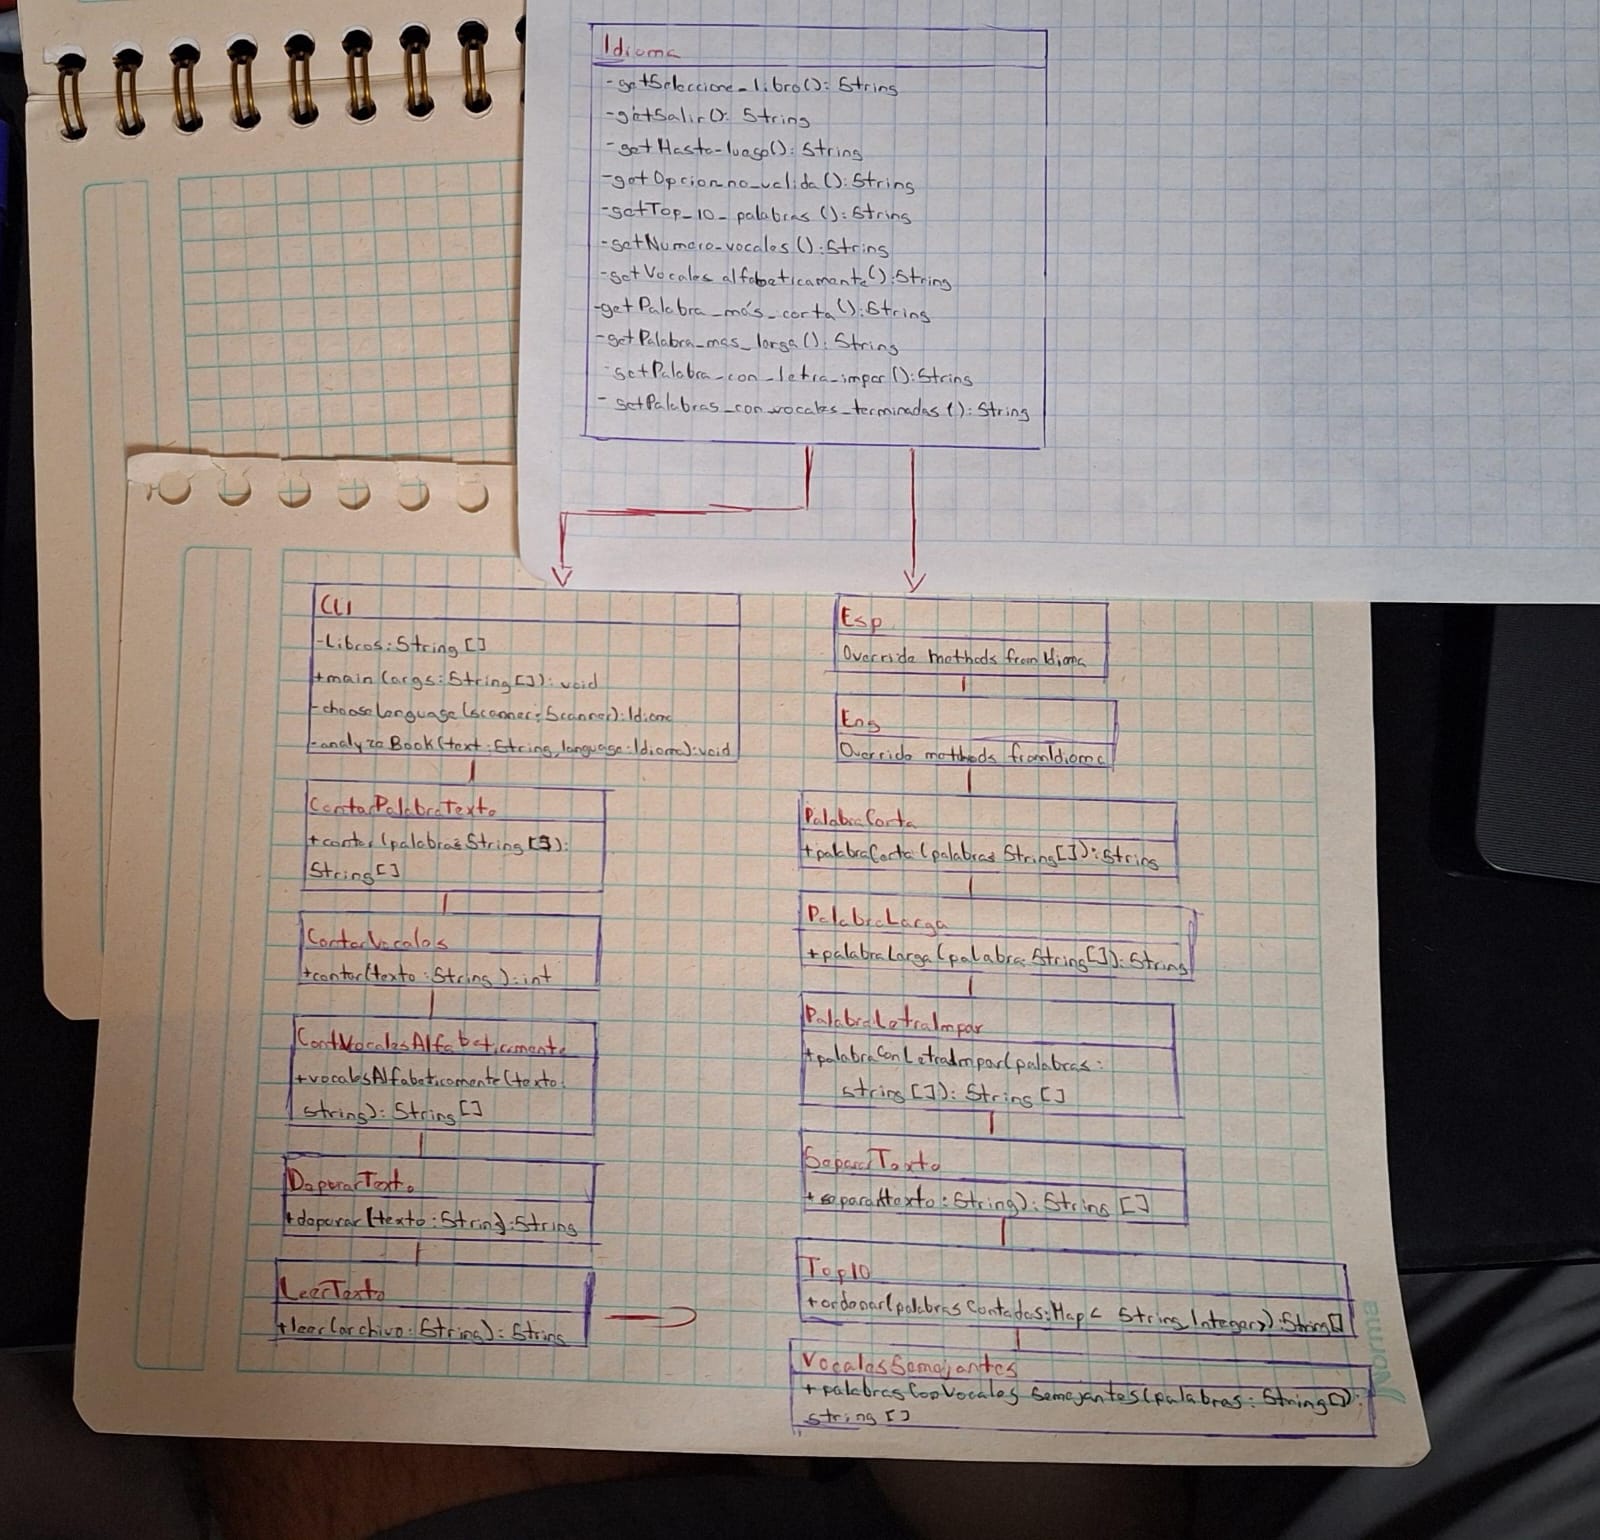 Idioma
-getSeleccione_libro(): String
-getSalir(): String
-getHasta-luego(): String
-getOpcion_no_valida(): String
-getTop_10_palabras(): String
-getNumero_vocales(): String
-getVocales alfabeticamente(): String
-getPalabra_más_corta(): String
-getPalabra_mas_larga(): String
-getPalabra_con_letra_impar(): String
-getPalabras_con_vocales_terminadas(): String
CLI
-Libros: String[]
+main(args: String[]): void
-chooseLanguage(scanner: Scanner): Idioma
-analyzeBook(text: String, language: Idioma): void
ContarPalabraTexto
+contar(palabras String[]):
String[]
ContarVocales
+contar(texto: String): int
ContVocalesAlfabeticamente
+vocalesAlfabeticamente(texto:
string): String[]
DepurarTexto
+depurar(texto: String): String
LeerTexto
+leer(archivo: String): String
Esp
Override methods from Idioma
Eng
Override methods from Idioma
PalabraCorta
+palabraCorta(palabras String[]): String
PalabraLarga
+palabraLarga(palabra: String[]): String
PalabraLetraImpar
+palabraConLetraImpar(palabras:
string[]): String[]
SepararTexto
+separar(texto: String): String[]
Top10
+ordenar(palabras Contadas: Map< String, Integer>): String[]
VocalesSemejantes
+palabrasConVocales Semejantes(palabras: String[]):
string[]
Norma